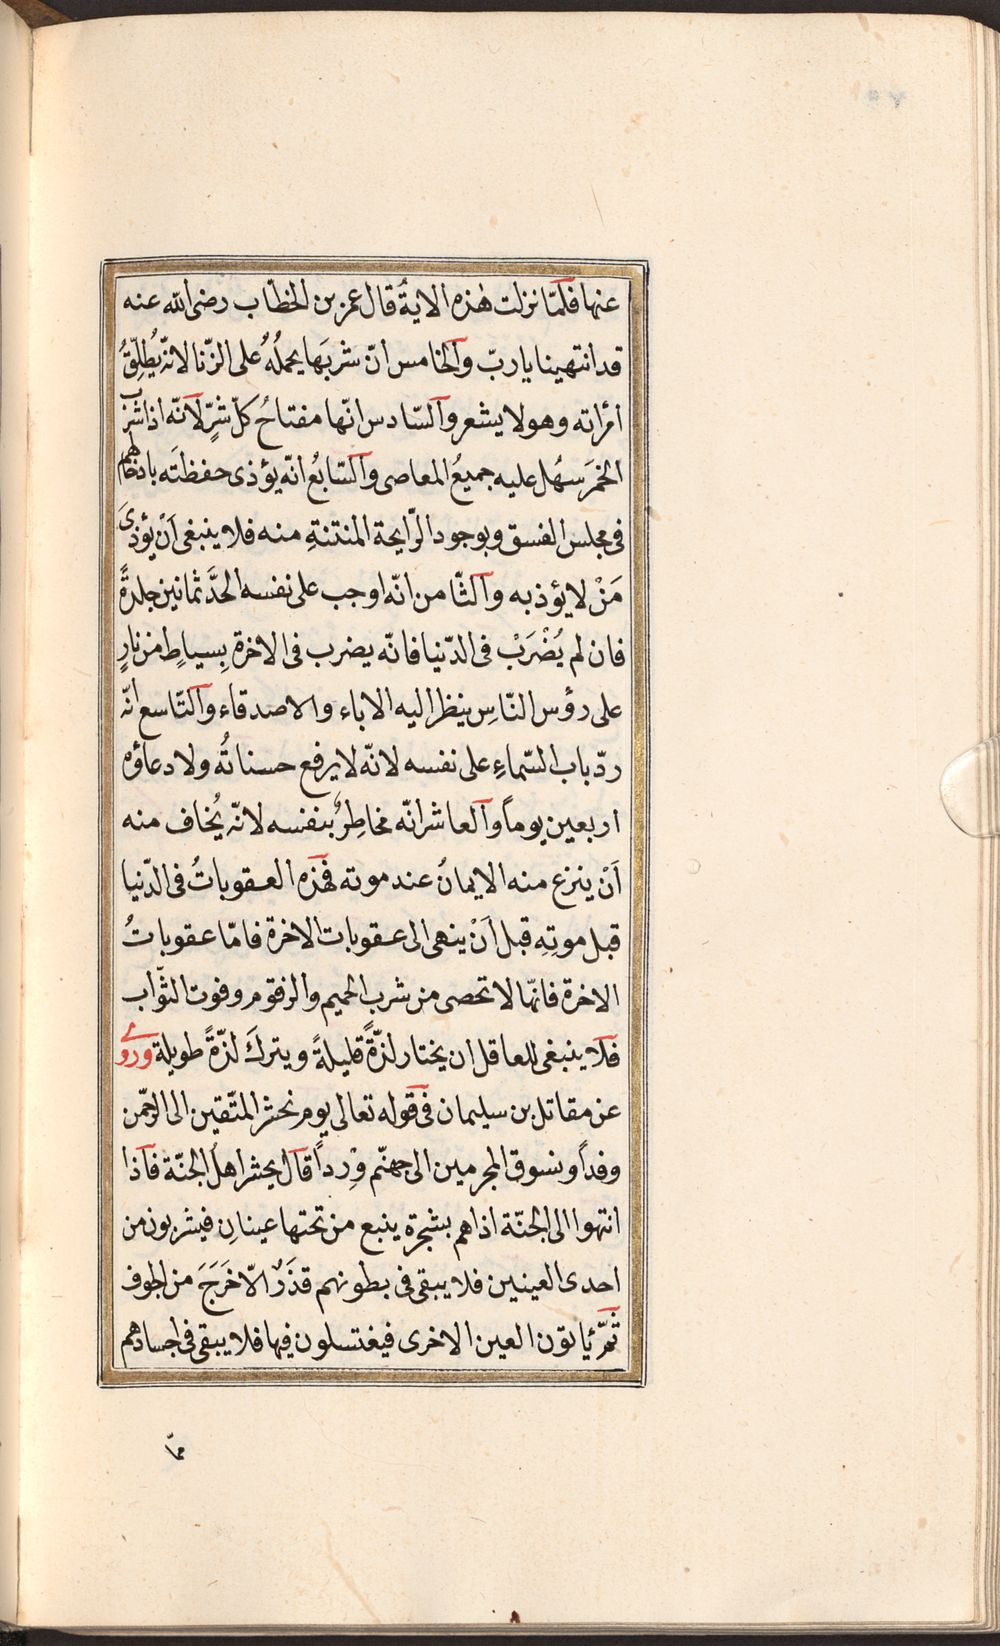 عنها فلمّا نزلت هٰذه الاية قال عمر بن الخطّاب رضى الله عنه
قد انتهينا يا ربّ والخامس انّ شربَها يحملُهُ على الزّنا لانّه يُطلِّقُ
امرأته وهو لا يشعر والسّادس انّها مفتاحُ كلّ شرٍّ لانّه اذا شرب
الخمرَ سهُل عليه جميعُ المعاصى والسّابعُ انّه يؤذى حفظتَه بادخالهم
فى مجلس الفسق وبوجود الرّايحة المنتنةِ منه فلا ينبغى اَنْ يؤذىَ
مَنْ لا يؤذيه والثّامن انّه اوجب على نفسه الحدَّ ثمانين جلدةً
فان لم يُضْرَبْ فى الدّنيا فانّه يضرب فى الاخرة بِسياطٍ من نارٍ
على رؤس النّاسِ ينظر اليه الاباء والاصدقاء والتّاسع انّه
ردّ باب السّماءِ على نفسه لانّه لا يرفع حسناتُه ولا دعاؤه
اربعين يوماً والعاشر انّه مخاطِرٌ بنفسه لانّه يُخاف منه
اَنْ ينزع منه الايمانُ عند موته فهذه العقوباتُ فى الدّنيا
قبل موتِهِ قبل اَنْ ينهى الى عقوبات الاخرة فامّا عقوباتُ
الاخرة فانّها لا تحصى من شرب الحميم والزقوم وفوت الثّواب
فلا ينبغى للعاقل ان يختار لذّةً قليلةً ويتركَ لذّةً طويلة وروى
عن مقاتل بن سليمان فى قوله تعالى يوم نحشر المتّقين الى الرحمن
وفداً ونسوق المجرمين الى جهنّم وِرداً قال يحشر اهلُ الجنّة فاذا
انتهوا الى الجنّة اذا هم بشجرة ينبع من تحتها عينانِ فيشربون من
احدى العينين فلا يبقى فى بطونهم قذَرٌ الّا خَرَجَ من الجوف
ثمّ يأتون العين الاخرى فيغتسلون فيها فلا يبقى فى اجسادهم
ممّا